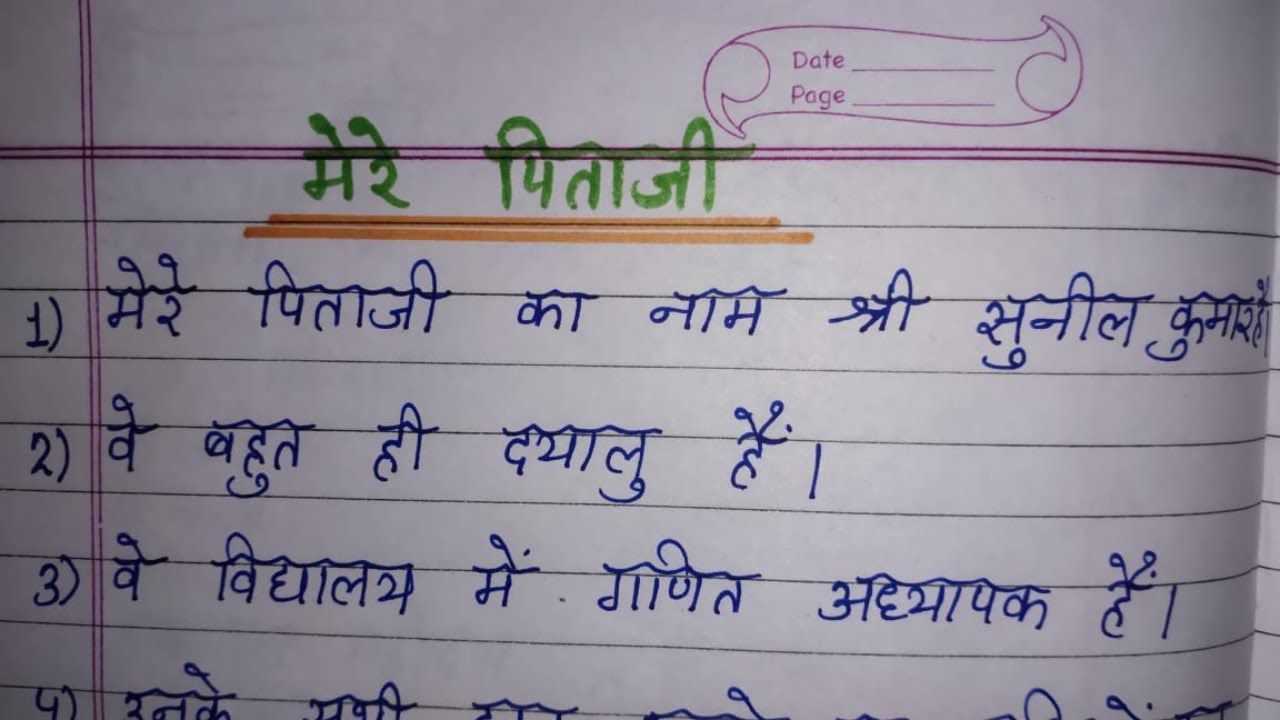 Date
Page
मेरे पिताजी
1) मेरे पिताजी का नाम श्री सुनील कुमार है
2) वे बहुत ही दयालु हैं।
3) वे विद्यालय में गणित अध्यापक हैं।
4) उनके सभी